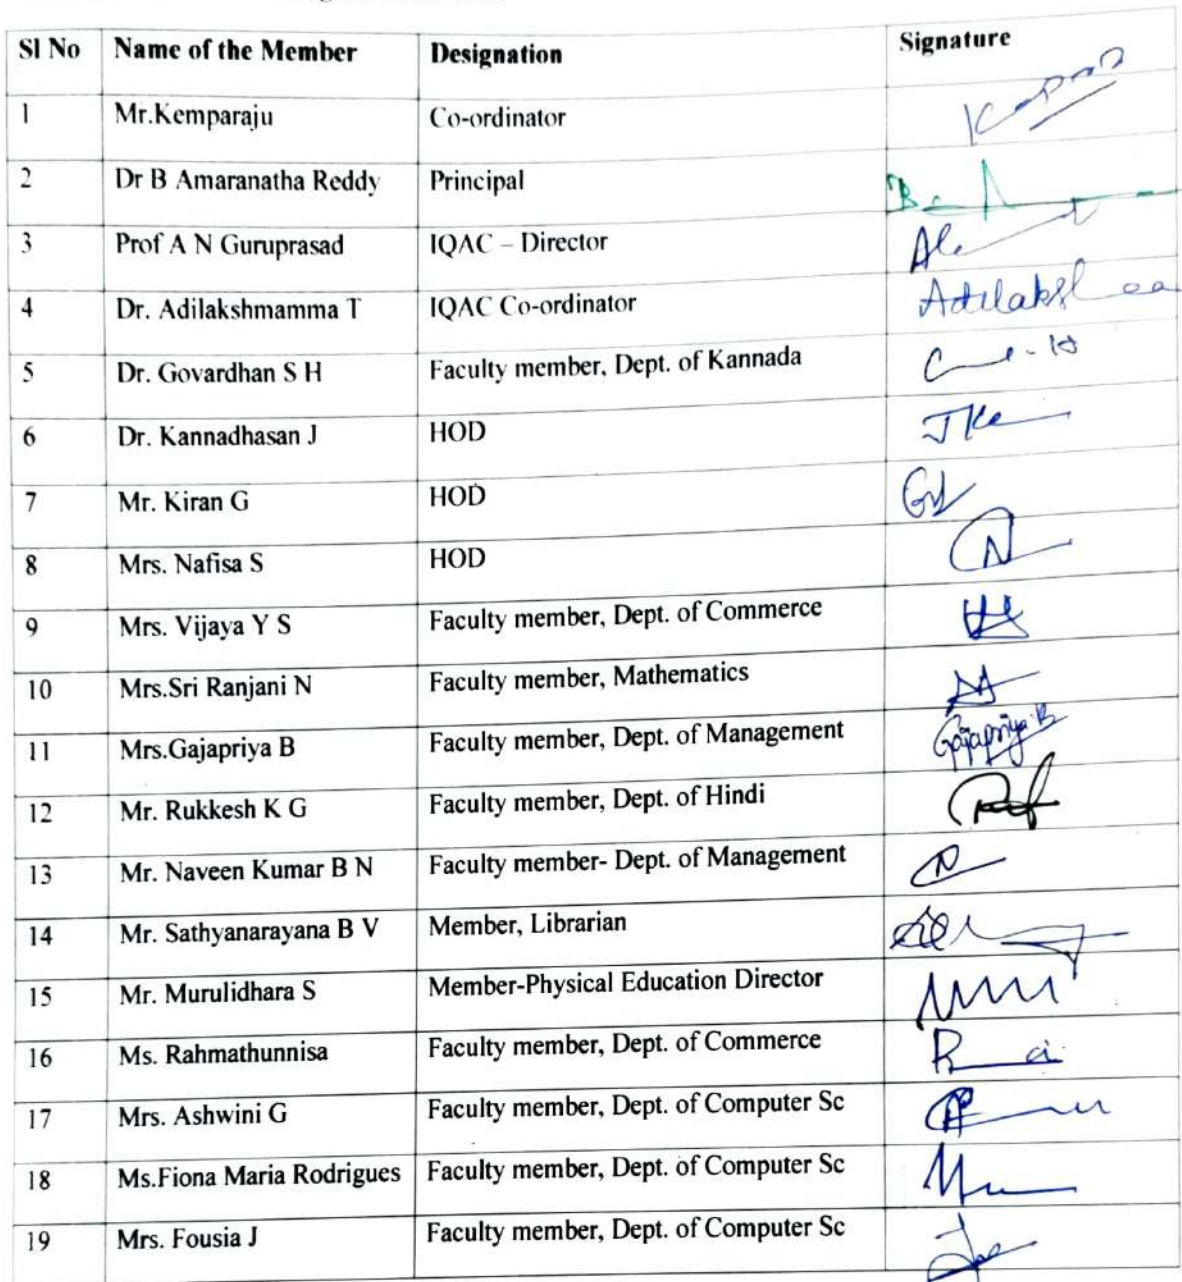 Sl No Name of the Member Designation Signature
1 Mr.Kemparaju Co-ordinator
2 Dr B Amaranatha Reddy Principal
3 Prof A N Guruprasad IQAC – Director
4 Dr. Adilakshmamma T IQAC Co-ordinator
5 Dr. Govardhan S H Faculty member, Dept. of Kannada
6 Dr. Kannadhasan J HOD
7 Mr. Kiran G HOD
8 Mrs. Nafisa S HOD
9 Mrs. Vijaya Y S Faculty member, Dept. of Commerce
10 Mrs.Sri Ranjani N Faculty member, Mathematics
11 Mrs.Gajapriya B Faculty member, Dept. of Management Gajapriya.B
12 Mr. Rukkesh K G Faculty member, Dept. of Hindi
13 Mr. Naveen Kumar B N Faculty member- Dept. of Management
14 Mr. Sathyanarayana B V Member, Librarian
15 Mr. Murulidhara S Member-Physical Education Director
16 Ms. Rahmathunnisa Faculty member, Dept. of Commerce
17 Mrs. Ashwini G Faculty member, Dept. of Computer Sc
18 Ms.Fiona Maria Rodrigues Faculty member, Dept. of Computer Sc
19 Mrs. Fousia J Faculty member, Dept. of Computer Sc